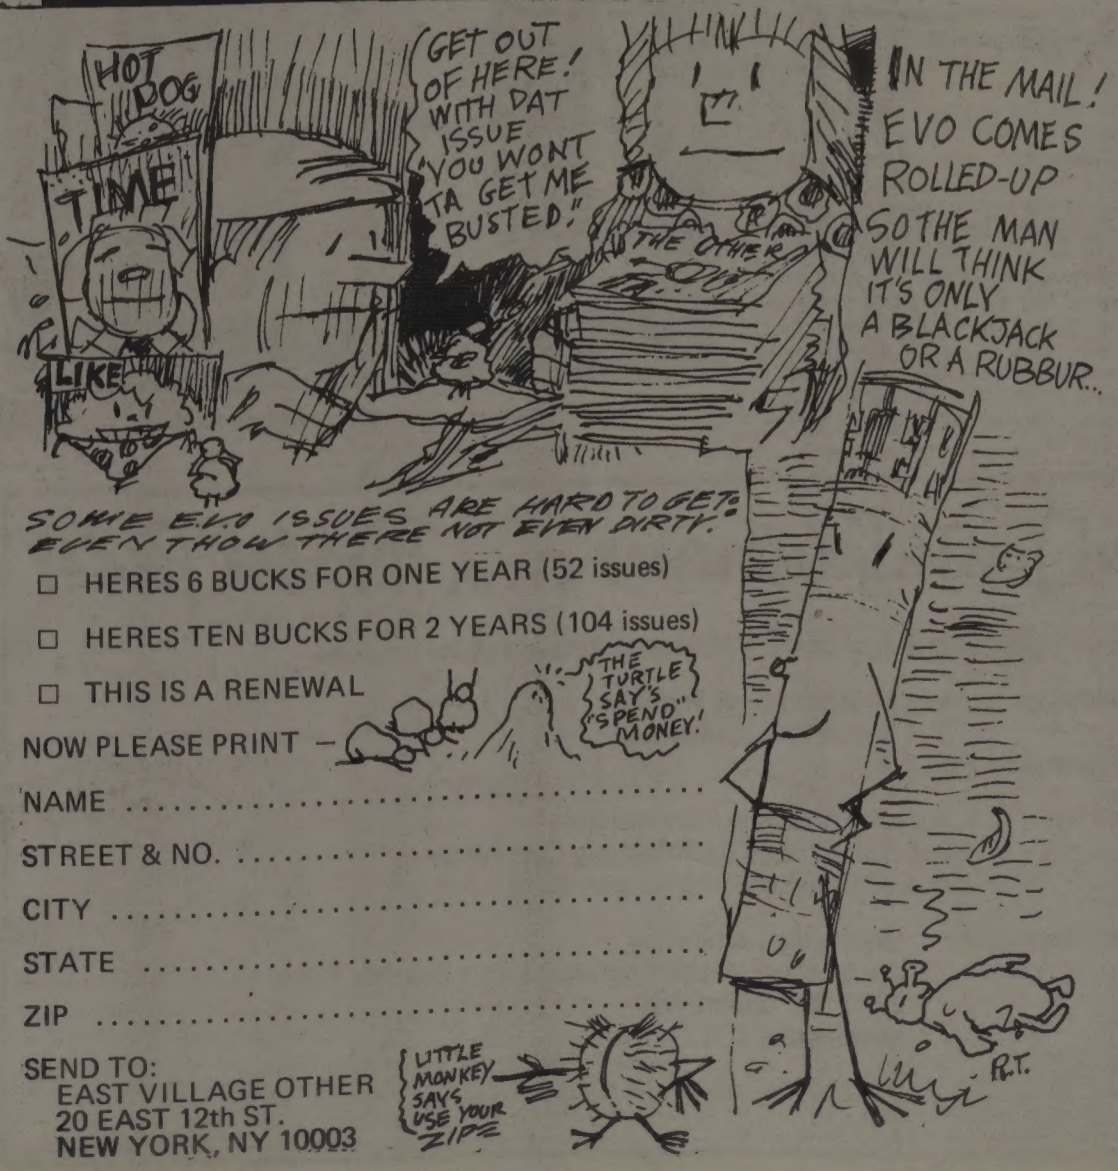 HOT
DOG
TIME
LIKE
GET OUT
OF HERE!
WITH DAT
ISSUE
"YOU WONT
TA GET ME
BUSTED!"
THE OTHER
IN THE MAIL!
EVO COMES
ROLLED-UP
SO THE MAN
WILL THINK
IT'S ONLY
A BLACKJACK
OR A RUBBUR...
SOME EVO ISSUES ARE HARD TO GET:
EVEN THOW THERE NOT EVEN DIRTY.
□ HERES 6 BUCKS FOR ONE YEAR (52 issues)
□ HERES TEN BUCKS FOR 2 YEARS (104 issues)
□ THIS IS A RENEWAL
THE
TURTLE
SAY'S
"SPEND"
MONEY!
NOW PLEASE PRINT –
NAME
STREET & NO.
CITY
STATE
ZIP
SEND TO:
EAST VILLAGE OTHER
20 EAST 12th ST.
NEW YORK, NY 10003
LITTLE
MONKEY
SAYS
USE YOUR
ZIPE
R.T.